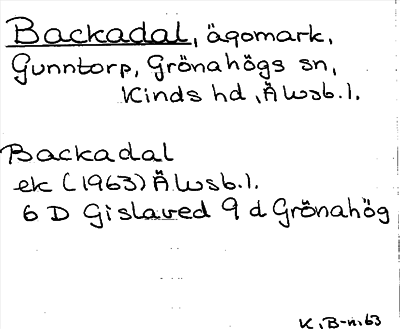 Backadal, ägomark,
Gunntorp, Grönahögs sn,
Kinds hd, Älvsb. l.
Backadal
ek (1963) Älvsb. l.
6 D Gislaved 9 d Grönahög
K. B-n. 63